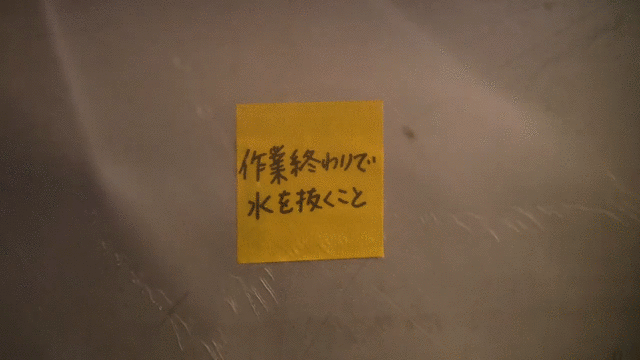 作業終わりで
水を抜くこと